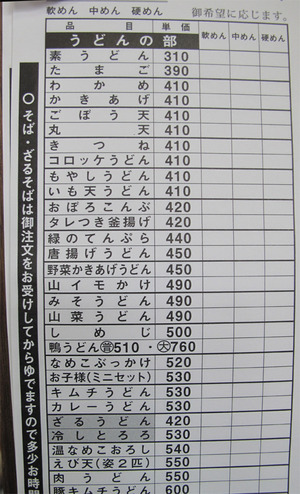 軟めん 中めん 硬めん 御希望に応じます。
品目 単価 軟めん 中めん 硬めん
うどんの部
素うどん 310
たまご 390
わかめ 410
かきあげ 410
ごぼう天 410
丸天 410
きつね 410
コロッケうどん 410
もやしうどん 410
いも天うどん 410
おぼろこんぶ 420
タレつき釜揚げ 420
緑のてんぷら 440
唐揚げうどん 450
野菜かきあげうどん 450
山イモかけ 490
みそうどん 490
山菜うどん 490
しめじ 500
鴨うどん㊥510・㊛760
なめこぶっかけ 520
お子様(ミニセット) 530
キムチうどん 530
カレーうどん 530
ざるうどん 420
冷しとろろ 530
温なめこおろし 540
えび天(姿2匹) 550
肉うどん 550
豚キムチうどん 600
○そば・ざるそばは御注文をお受けしてからゆでますので多少お時間